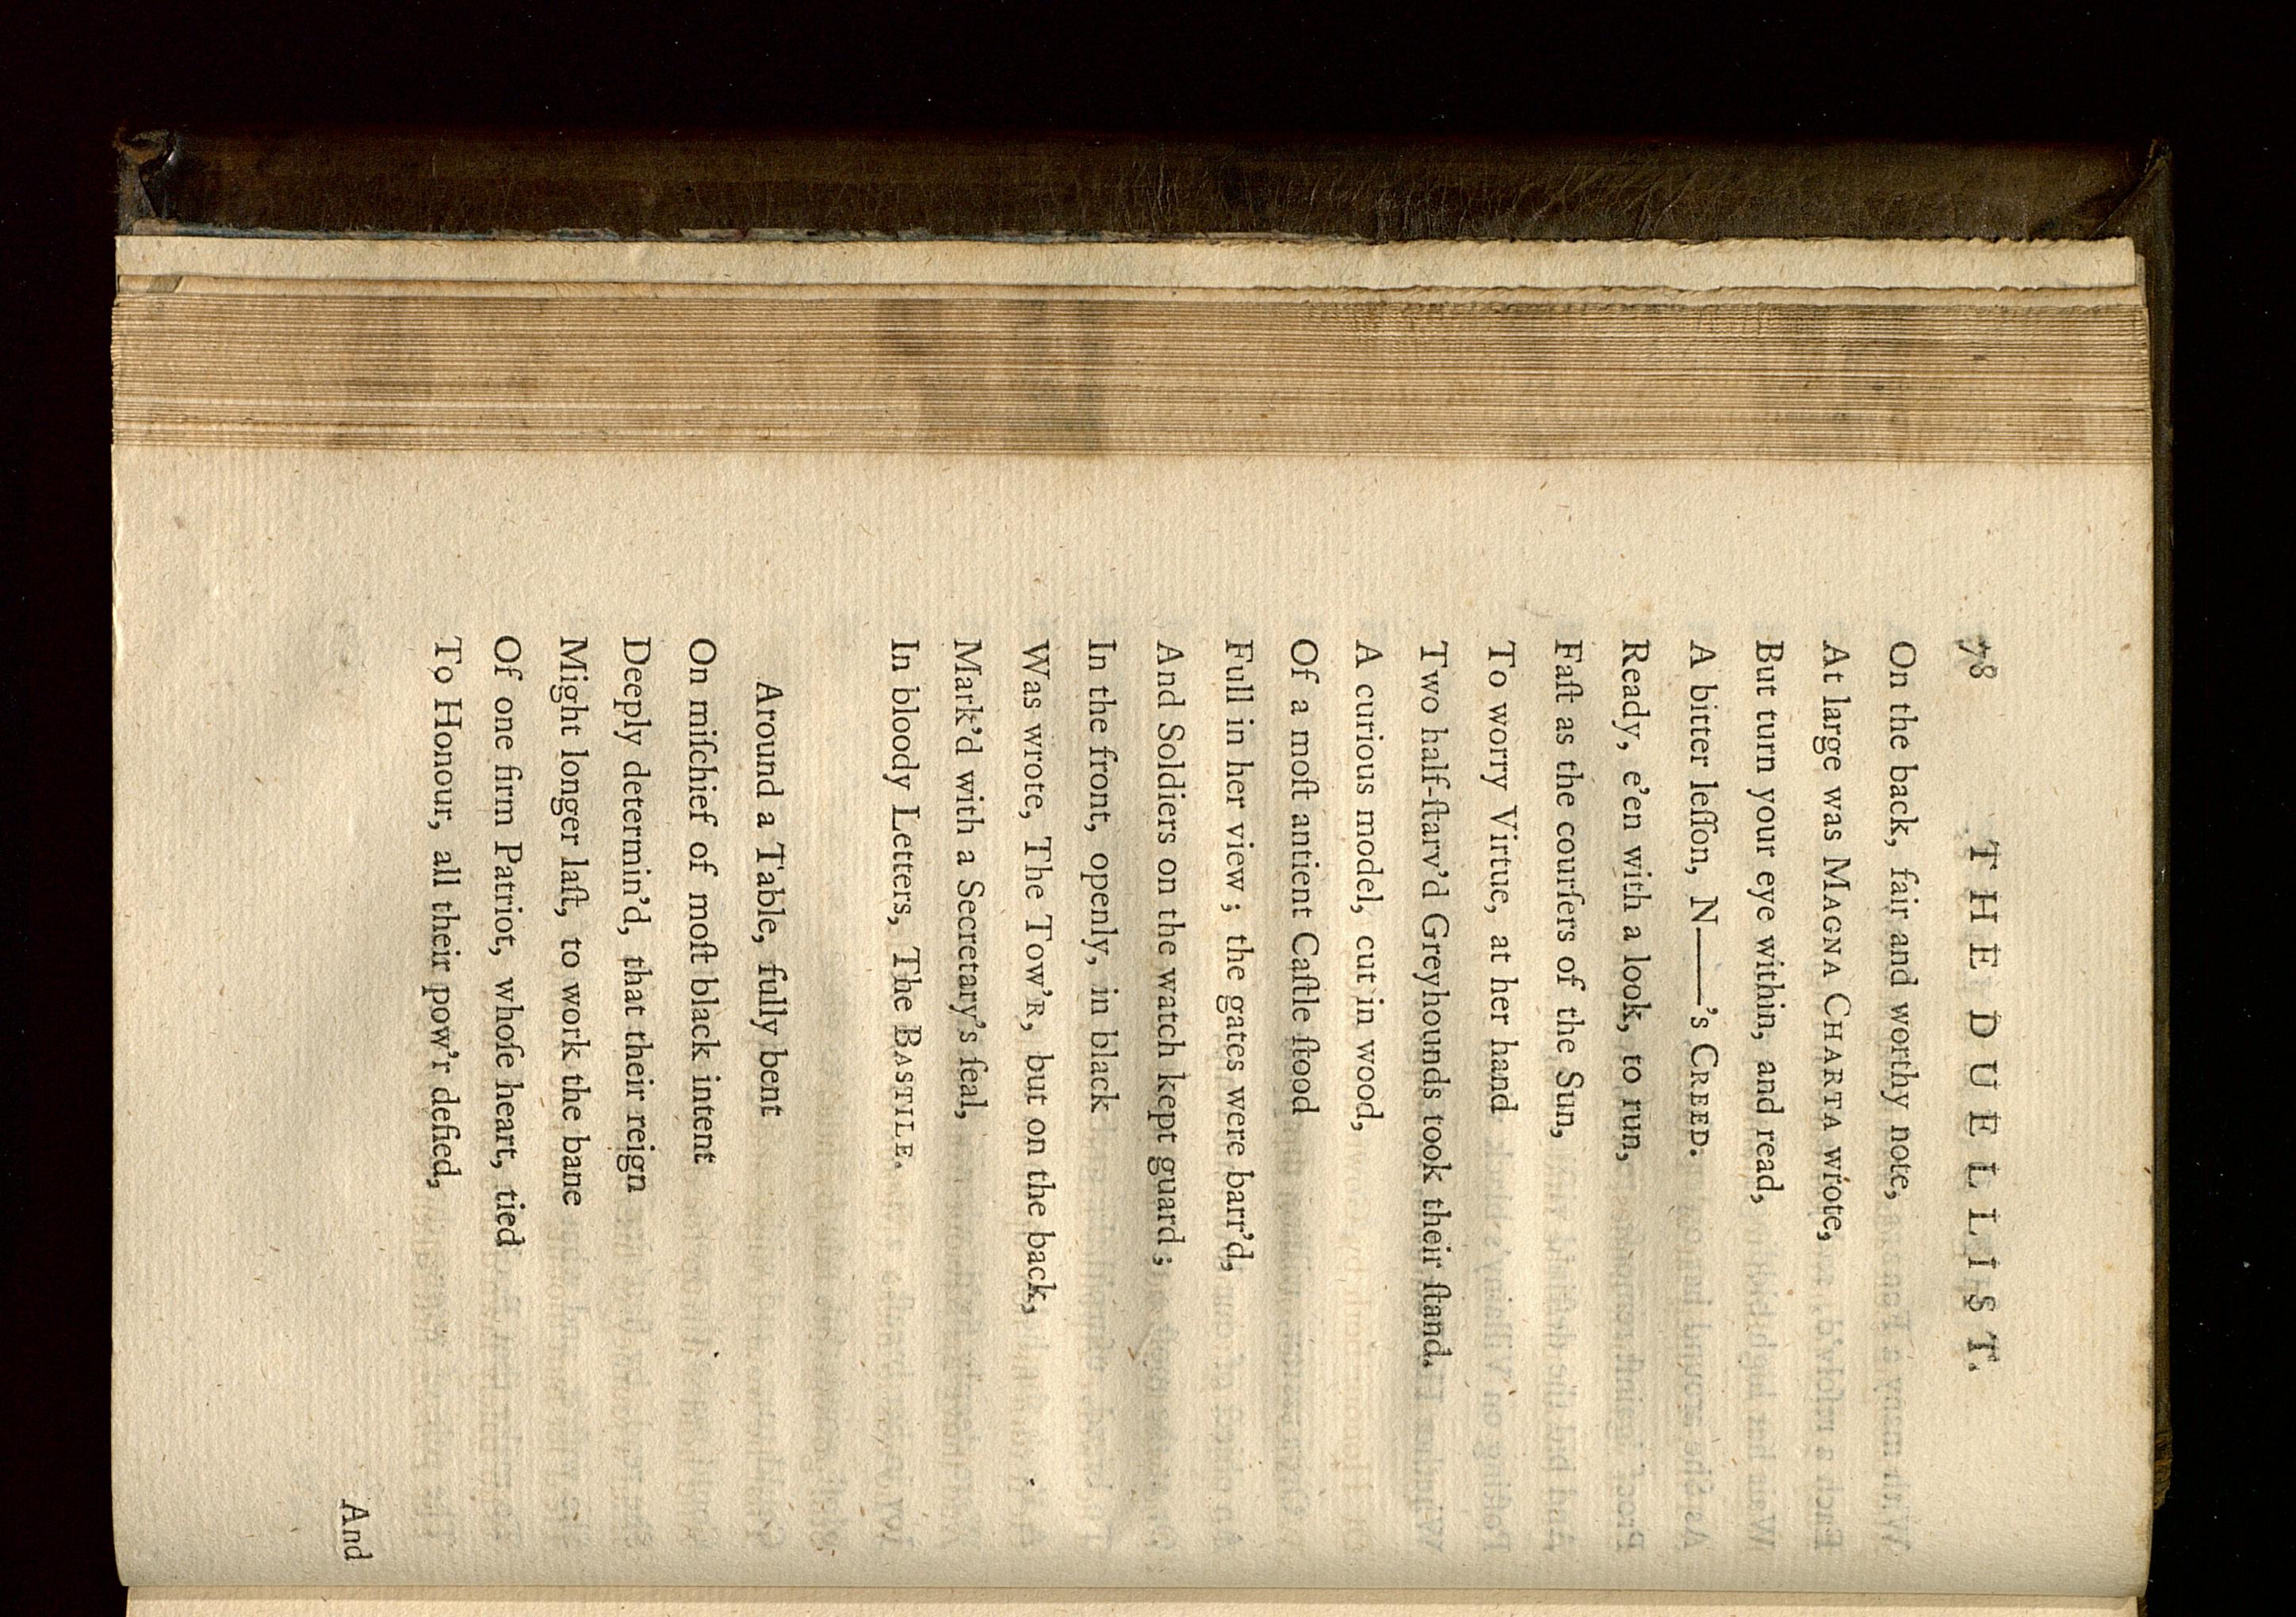 78 THE DUELLIST.
On the back, fair and worthy note,
At large was MAGNA CHARTA wrote,
But turn your eye within, and read,
A bitter leſſon, N——'s CREED.
Ready, e'en with a look, to run,
Faſt as the courſers of the Sun,
To worry Virtue, at her hand
Two half-ſtarv'd Greyhounds took their ſtand.
A curious model, cut in wood,
Of a moſt antient Caſtle ſtood
Full in her view; the gates were barr'd,
And Soldiers on the watch kept guard;
In the front, openly, in black
Was wrote, The TOW'R, but on the back,
Mark'd with a Secretary's ſeal,
In bloody Letters, The BASTILE.
Around a Table, fully bent
On miſchief of moſt black intent
Deeply determin'd, that their reign
Might longer laſt, to work the bane
Of one firm Patriot, whoſe heart, tied
To Honour, all their pow'r defied,
And